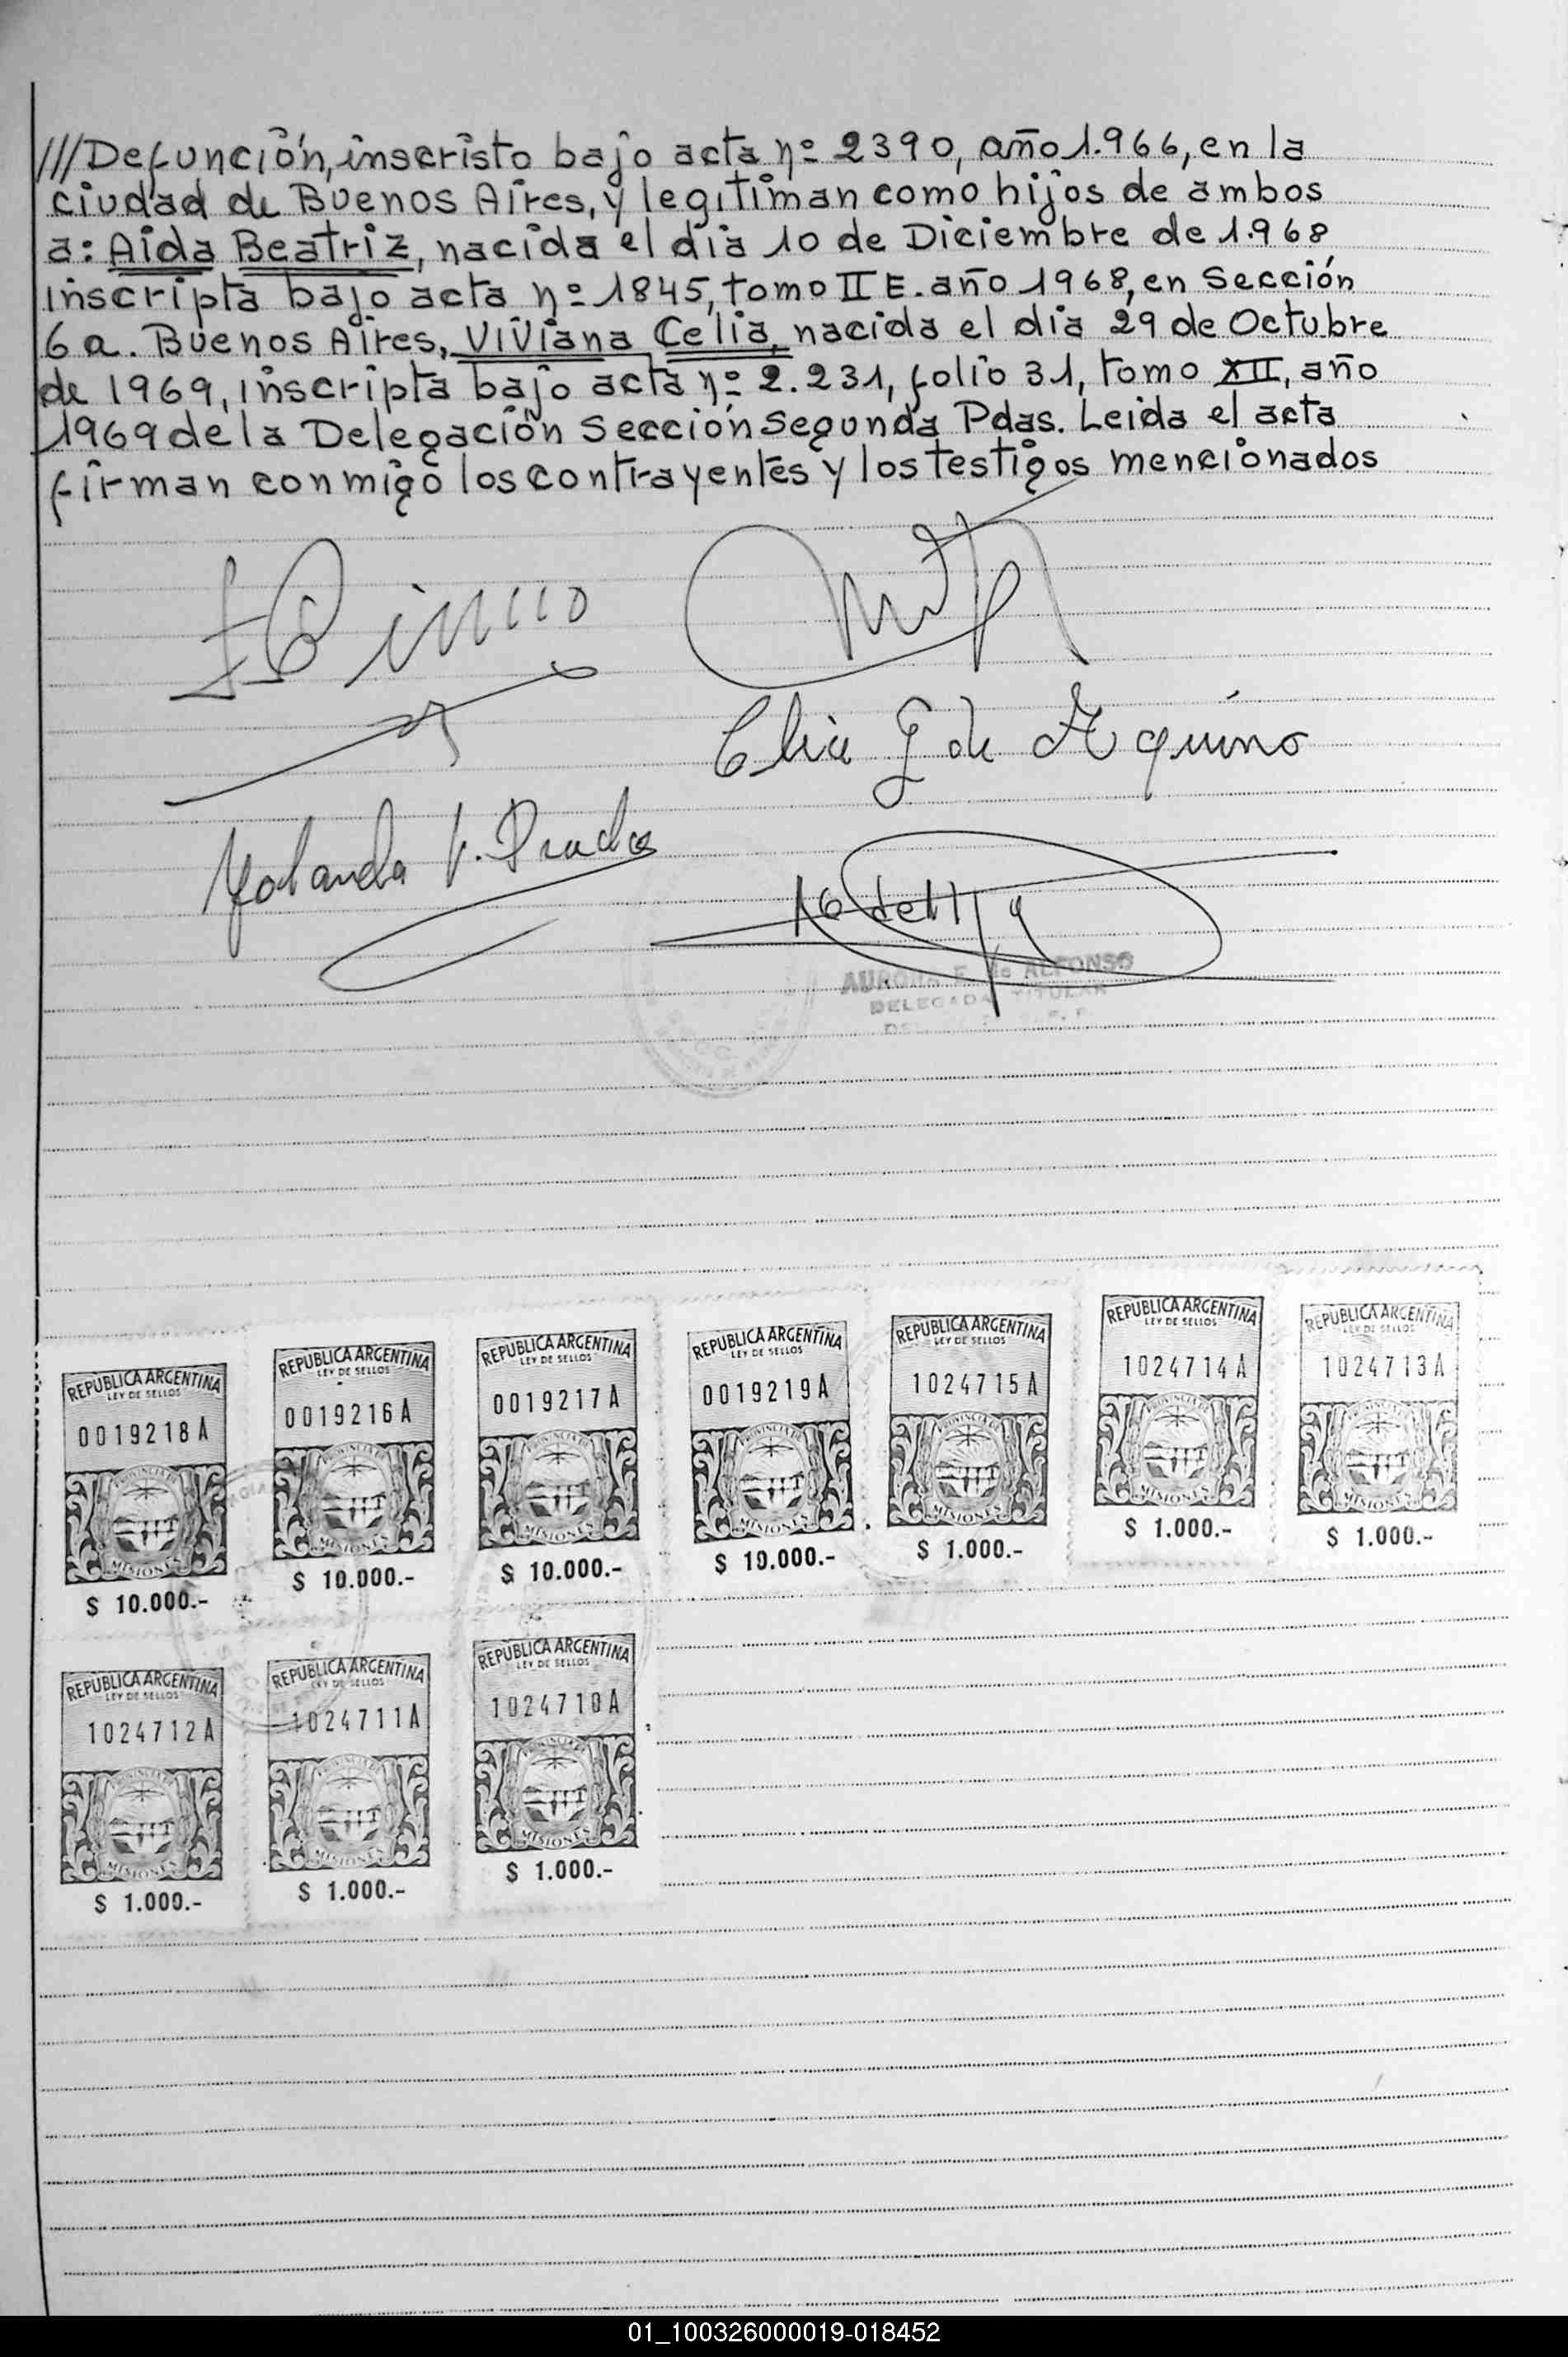 ///Defunción, inscristo bajo acta nº 2390, año 1.966, en la
ciudad de Buenos Aires, y legitiman como hijos de ambos
a: Aida Beatriz, nacida el dia 10 de Diciembre de 1.968
inscripta bajo acta nº 1845, tomo II E. año 1968, en Sección
6a. Buenos Aires, Viviana Celia, nacida el dia 29 de Octubre
de 1969, inscripta bajo acta nº 2.231, folio 31, tomo XII, año
1969 de la Delegación Sección Segunda Pdas. Leida el acta
firman conmigo los contrayentes y los testigos mencionados
de Aquino
Yolanda
AURORA E. de ALFONSO
DELEGADA TITULAR
REPUBLICA ARGENTINA
LEY DE SELLOS
0019218A
PROVINCIA DE
MISIONES
$ 10.000.-
REPUBLICA ARGENTINA
LEY DE SELLOS
0019216A
PROVINCIA DE
MISIONES
$ 10.000.-
REPUBLICA ARGENTINA
LEY DE SELLOS
0019217A
PROVINCIA DE
MISIONES
$ 10.000.-
REPUBLICA ARGENTINA
LEY DE SELLOS
0019219A
PROVINCIA DE
MISIONES
$ 10.000.-
REPUBLICA ARGENTINA
LEY DE SELLOS
1024715A
PROVINCIA DE
MISIONES
$ 1.000.-
REPUBLICA ARGENTINA
LEY DE SELLOS
1024714A
PROVINCIA DE
MISIONES
$ 1.000.-
REPUBLICA ARGENTINA
LEY DE SELLOS
1024713A
PROVINCIA DE
MISIONES
$ 1.000.-
REPUBLICA ARGENTINA
LEY DE SELLOS
1024712A
PROVINCIA DE
MISIONES
$ 1.000.-
REPUBLICA ARGENTINA
LEY DE SELLOS
1024711A
PROVINCIA DE
MISIONES
$ 1.000.-
REPUBLICA ARGENTINA
LEY DE SELLOS
1024710A
PROVINCIA DE
MISIONES
$ 1.000.-
01_100326000019-018452